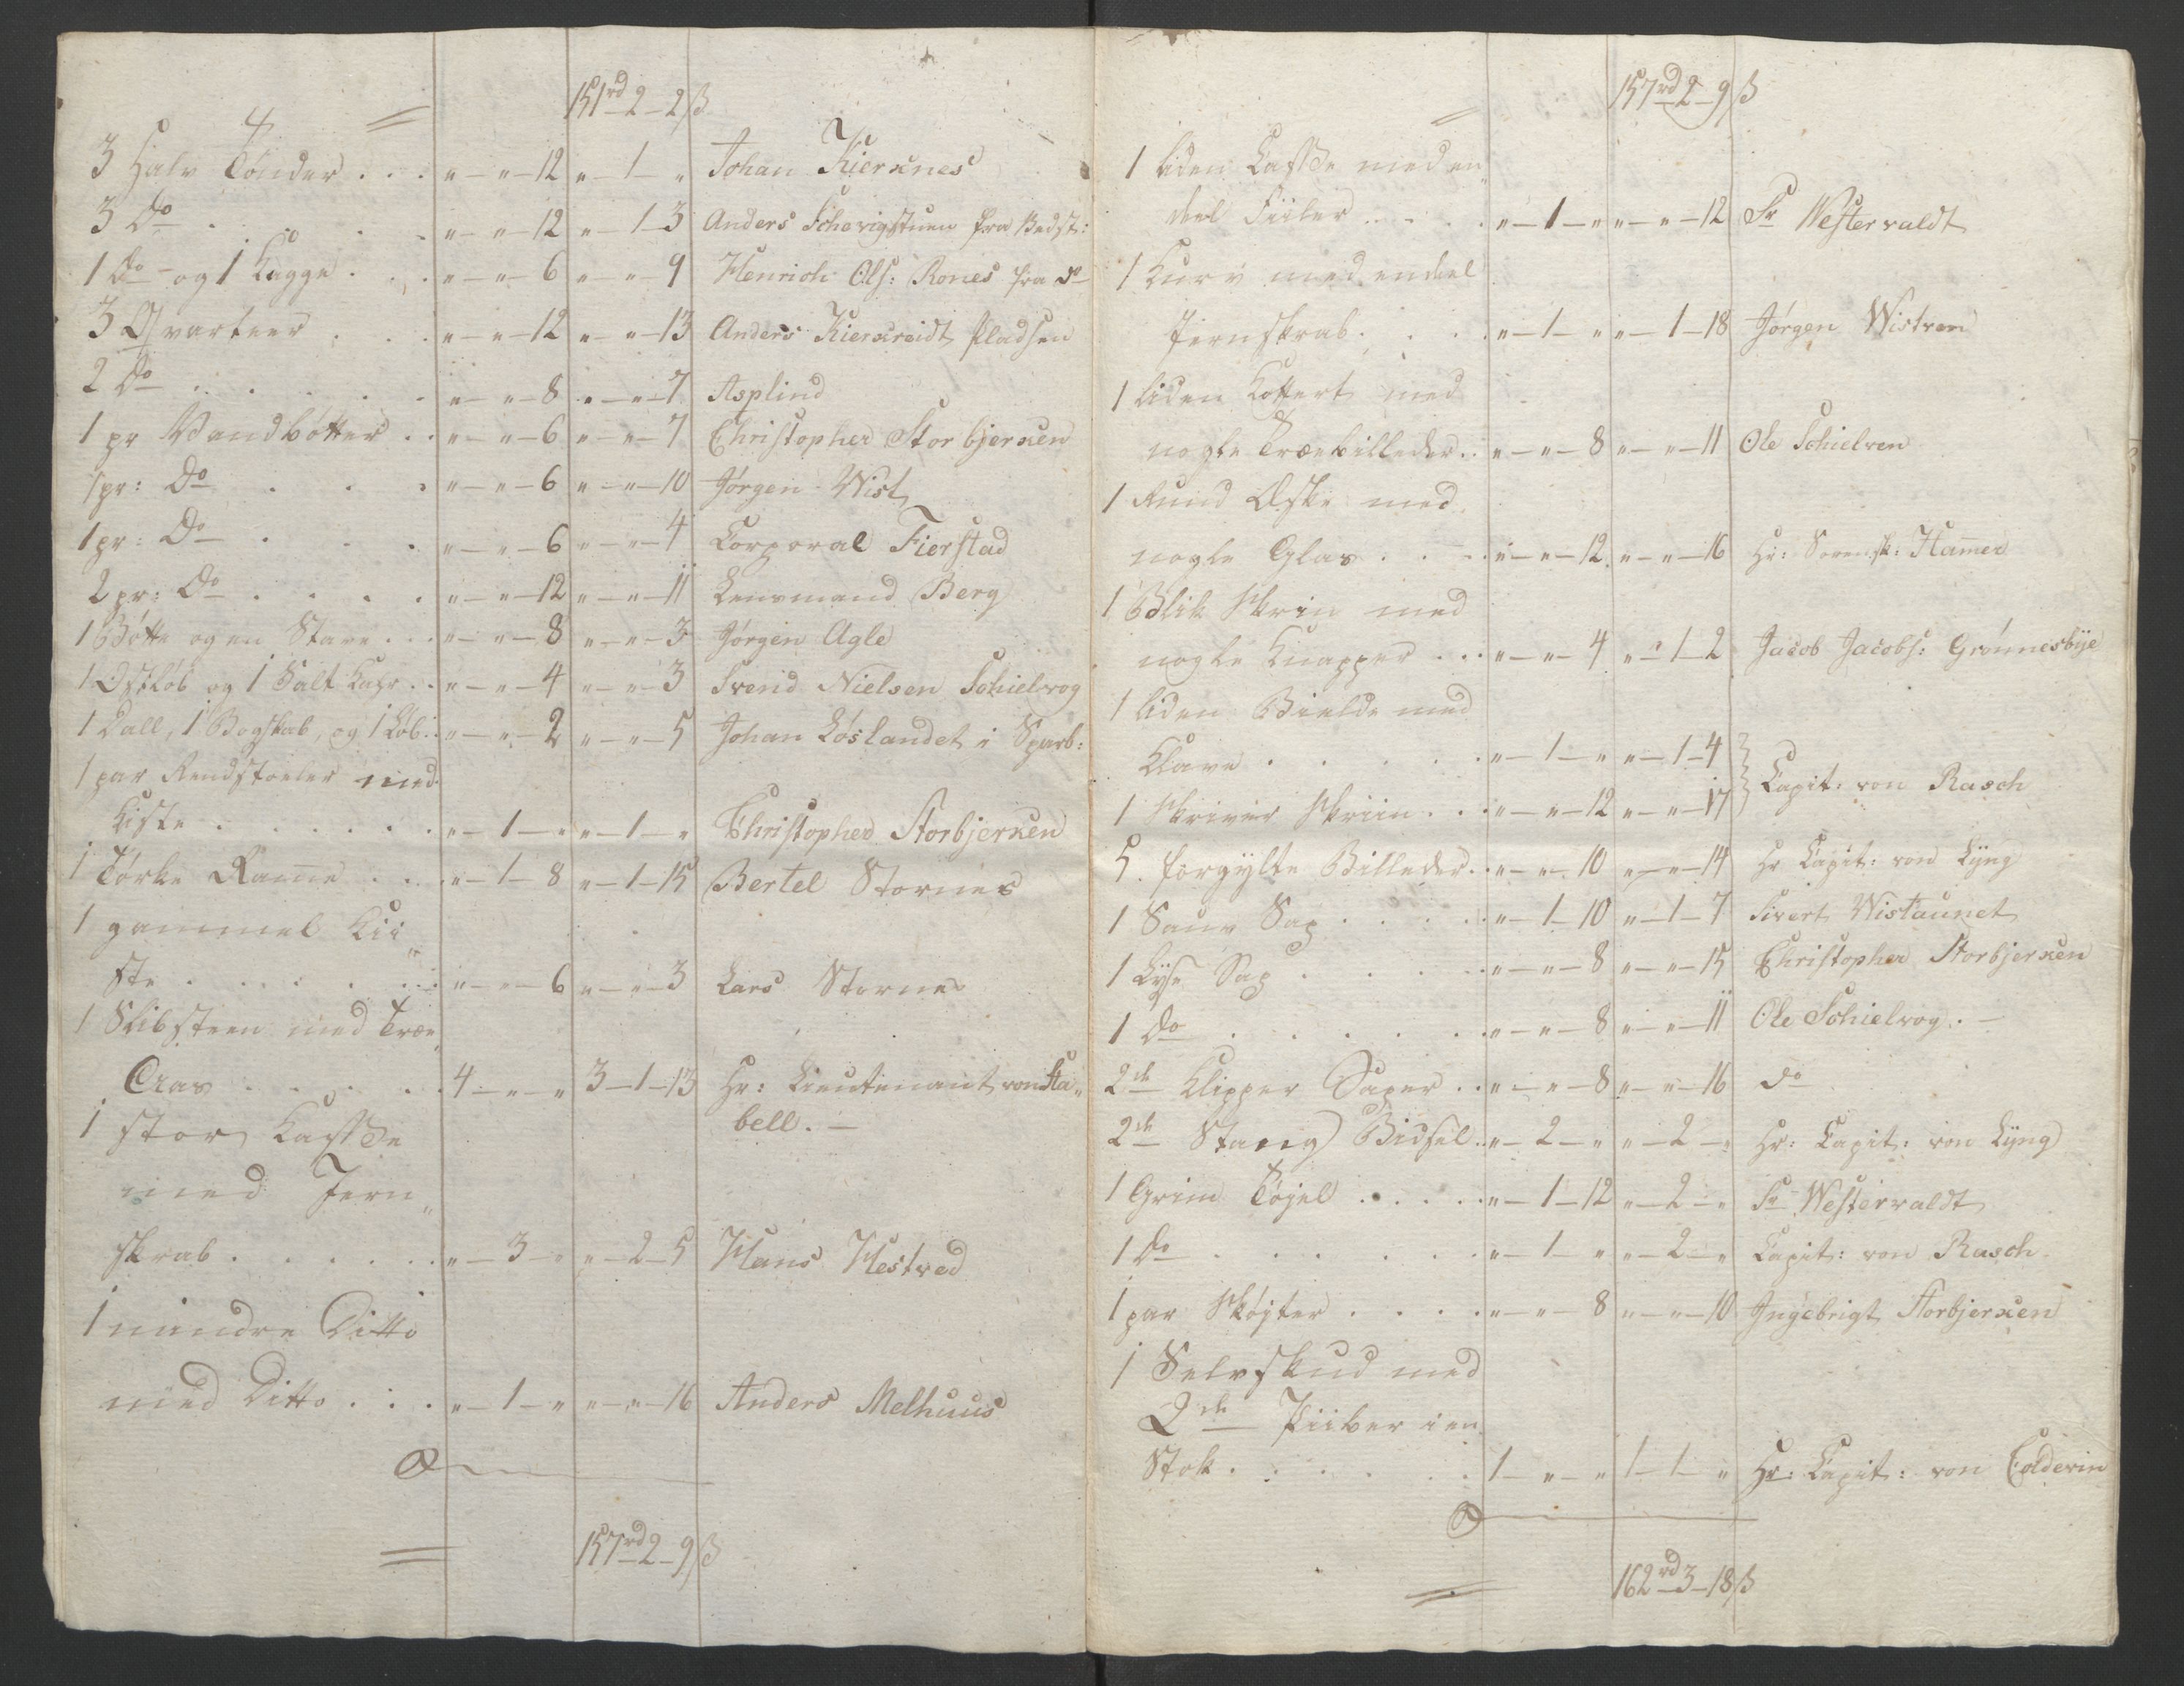 151rd 2 - 2 ß
4
3 Halv Tønder . . . " — " — 12 " — 1 — " Johan Kierxnes
3 Do . . . " — " — 12 " — 1 3 Anders Schevigstuen fra Bedst:
1 Do og 1 Kagge . . " — " — 6 " — " — 9 Henrich Ols: Rones fra Do
3 Qvarteer . . . " — " — 12 " — " — 13 Anders Kierxreidt Pladsen
2 Do . . . . " — " — 8 " — " — 7 Asplind
1 pr Vandbøtter . . " — " — 6 " — " — 7 Christopher Storbjerxen
1 pr: Do . . . " — " — 6 " — " — 10 Jørgen Wist
1 pr: Do . . . " — " — 6 " — " — 4 Corporal Fierstad
2 pr: Do . . . . " — " — 12 " — " — 11 Lensmand Berg
1 Bøtte og en Stave . . . " — " — 8 " — " — 3 Jørgen Agle
1 Ostløb og 1 Salt Kar . . " — " — 4 " — " — 3 Svend Nielsen Schielvog
1 Dall, 1 Bogskab, og 1 Løb: . " — " — 2 " — " — 5 Johan Løslandet i Sparb:
1 par Rendstoeler med
Kiste . . . . . . " — 1 — " " — 1 — " Christopher Storbjerxen
1 Tørke Rame . . . " — 1 — 8 " — 1 — 15 Bertel Stornes
1 gammel Kii„
ste . . . . . " — " — 6 " — " — 3 Lars Stornes
1 Slibsteen med Træe„
Aas . . . . . 4 — " — " 3 — 1 — 13 Hr: Lieutenant von Ha„
bell. —
1 stor Kasse
med Jern„
skrab . . . . . " — 3 — " " — 2 — 5 Hans Hestved
1 mindre Ditto
med Ditto . . . " — 1 — " " — " — 16 Anders Melhuus
157rd 2 — 9 ß
157rd 2 — 9 ß
1 liden Kasse med en„
deel Fiiler . . . . " — 1 — " " — " — 12 Sr Westervaldt
1 Kurv med endeel
Jernskrab . . . . " — 1 — " " — 1 — 18 Jørgen Wistven
1 liden Koffert med
nogle Træebilleder . . " — " — 8 " — " — 11 Ole Schielven
1 Rund Æske med
nogle Glas . . . . " — " — 12 " — " — 16 Hr: Sorensk: Hamer
1 Blik Skrin med
nogle Knapper . . . " — " — 4 " — 1 — 2 Jacob Jacobs: Grønnesbye
1 liden Bielde med
Klave . . . . . " — 1 — " " — 1 — 4
1 Skriver Skriin . . . " — " — 12 " — " — 17 Capit: von Rasch
5 forgylte Billeder . . " — " — 10 " — " — 14 Hr Capit: von Lyng
1 Sauv Sax . . . . " — 1 — 10 " — 1 — 7 Sivert Wistaunet
1 Lyse Sax . . . . . " — " — 8 " — " — 15 Christopher Storbjerxen
1 Do . . . . . " — " — 8 " — " — 11 Ole Schielvog. —
2de Klipper Saxer . . " — " — 8 " — " — 16 Do
2de Stang Bidsel . . " — 2 — " " — 2 — " Hr: Capit: von Lyng
1 Grim Tøjel . . . . . " — 1 — 12 " — 2 — " Sr Westervaldt
1 Do . . . . . . " — 1 — " " — 2 — " Capit: von Rasch
1 par Skøjter . . . . " — " — 8 " — " — 10 Ingebrigt Storbjerxen
1 Selvskud med
2de Piiber i en
Stok . . . . . . 1 — " — " 1 — 1 — " Hr: Capit: von Colderin
162rd 3 — 18 ß